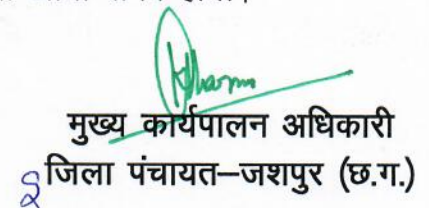 मुख्य कार्यपालन अधिकारी
जिला पंचायत–जशपुर (छ.ग.)